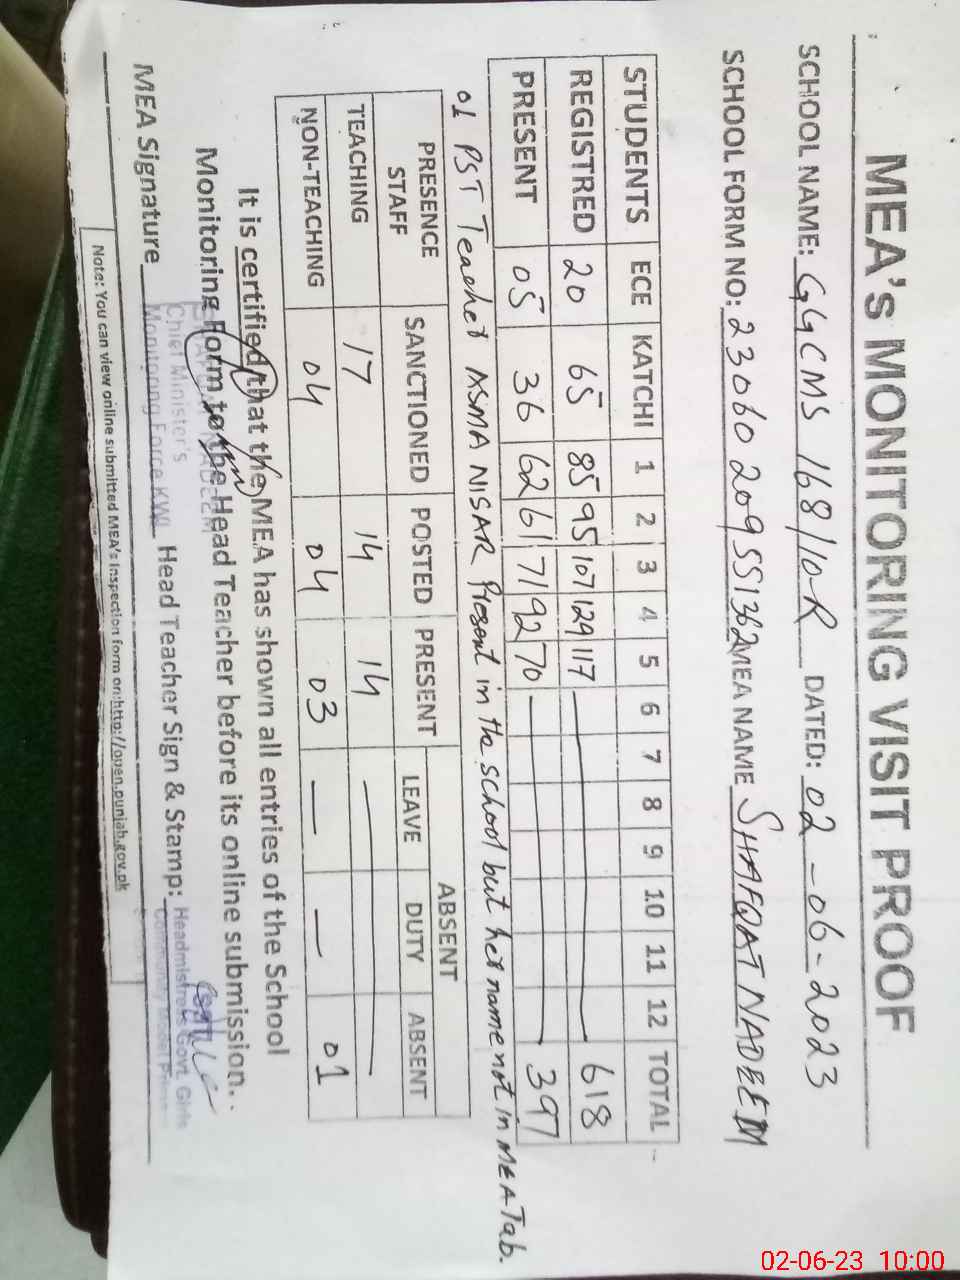 MEA's MONITORING VISIT PROOF
SCHOOL NAME: GGCMS 168/10-R DATED: 02-06-2023
SCHOOL FORM NO: 23060209551362 MEA NAME SHAFQAT NADEEM
STUDENTS ECE KATCHI 1 2 3 4 5 6 7 8 9 10 11 12 TOTAL
REGISTRED 20 65 85 95 107 129 117 — 618
PRESENT 05 36 62 61 71 92 70 — 397
01 PST Teacher ASMA NISAR Present in the school but her name not in MEA Tab.
PRESENCE STAFF SANCTIONED POSTED PRESENT ABSENT
LEAVE DUTY ABSENT
TEACHING 17 14 14 —
NON-TEACHING 04 04 03 — — 01
It is certified that the MEA has shown all entries of the School
Monitoring Form to the Head Teacher before its online submission.
SHAFQAT NADEEM
Chief Minister's
Monitoring Force KWL
MEA Signature Head Teacher Sign & Stamp:
Headmistress Govt. Girls
Community Model
Note: You can view online submitted MEA's Inspection form on:http://open.punjab.gov.pk
02-06-23 10:00